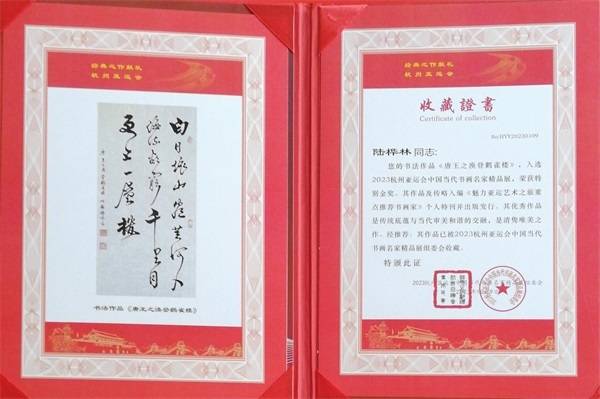 经典之作献礼
杭州亚运会
白日依山尽黄河入
海流欲穷千里目
更上一层楼
书法作品《唐王之涣登鹳雀楼》
经典之作献礼
杭州亚运会
收藏證書
Certificate of collection
陆桦林同志:
您的书法作品《唐王之涣登鹳雀楼》,入选
2023杭州亚运会中国当代书画名家精品展,荣获特
别金奖。其作品及传略入编《魅力亚运艺术之旅重
点推荐书画家》个人特刊并出版发行。其优秀作品
是传统底蕴与当代审美和谐的交融,是清隽唯美之
作。经推荐:其作品已被2023杭州亚运会中国当代
书画名家精品展组委会收藏。
特颁此证